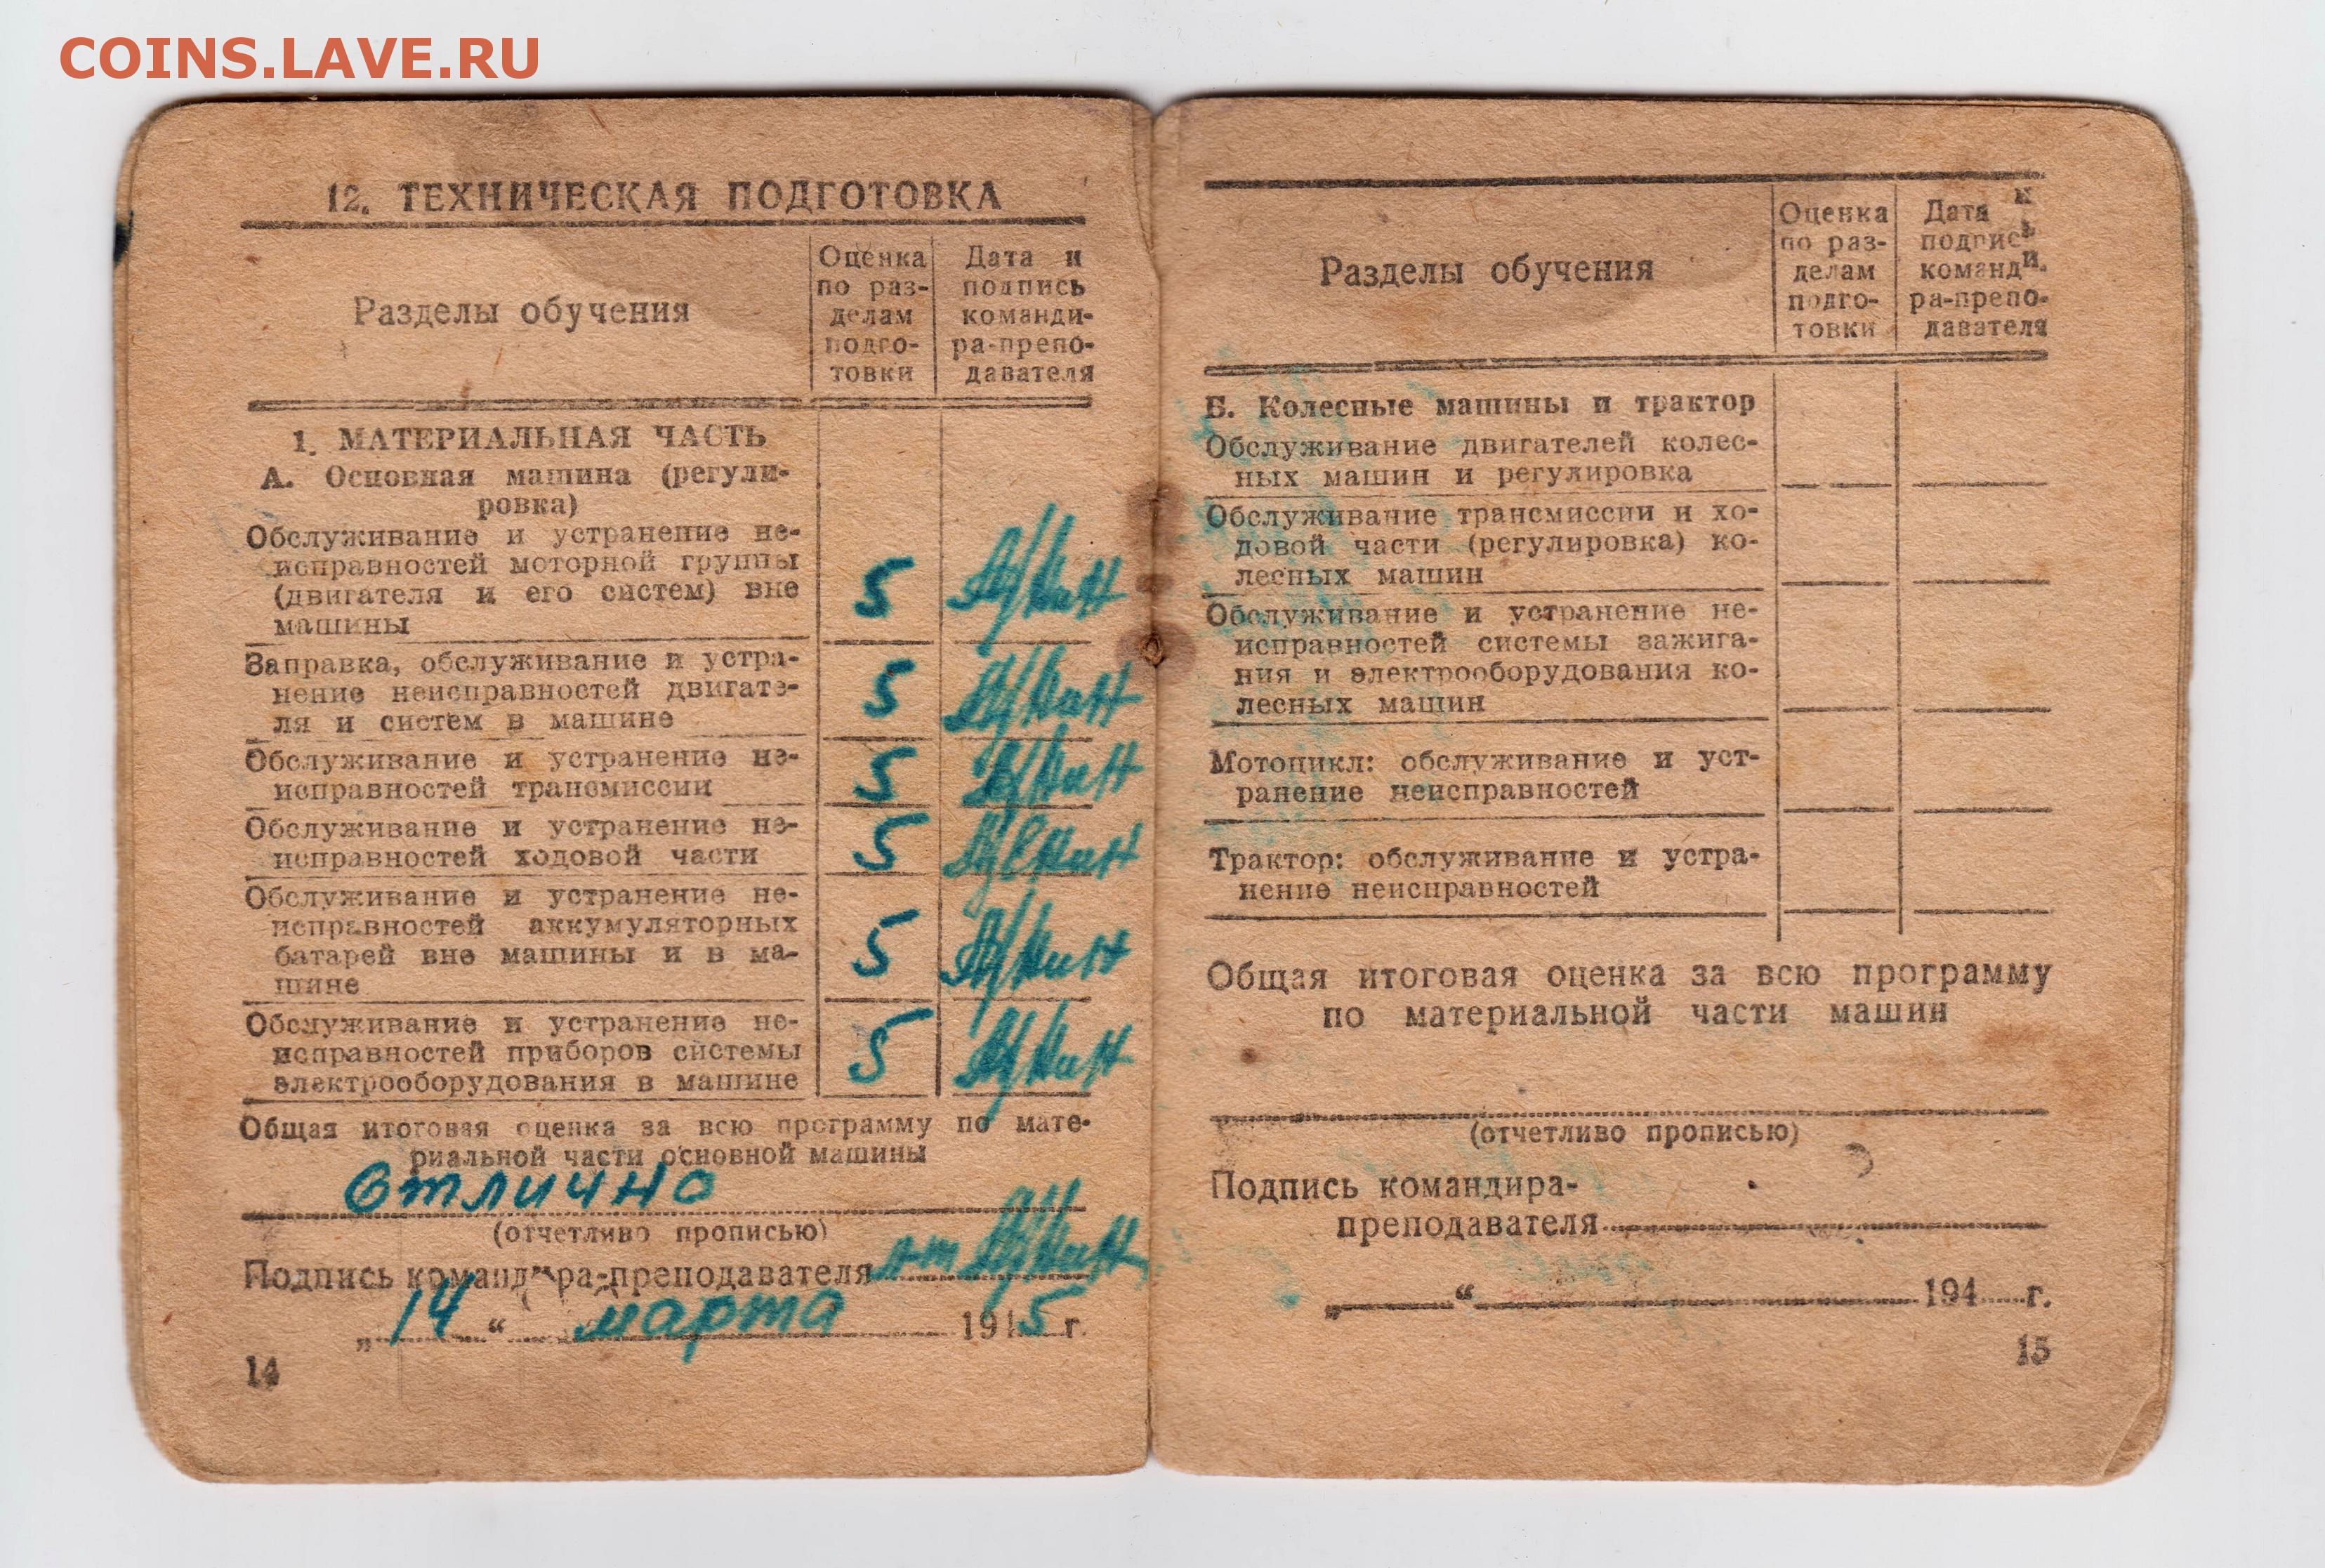 COINS.LAVE.RU
12. ТЕХНИЧЕСКАЯ ПОДГОТОВКА
Разделы обучения
Оценка
по раз-
делам
подго-
товки
Дата и
подпись
команди-
ра-препо-
давателя
1. МАТЕРИАЛЬНАЯ ЧАСТЬ
А. Основная машина (регули-
ровка)
Обслуживание и устранение не-
исправностей моторной группы
(двигателя и его систем) вне
машины
5
Заправка, обслуживание и устра-
нение неисправностей двигате-
ля и систем в машине
5
Обслуживание и устранение не-
исправностей трансмиссии
5
Обслуживание и устранение не-
исправностей ходовой части
5
Обслуживание и устранение не-
исправностей аккумуляторных
батарей вне машины и в ма-
шине
5
Обслуживание и устранение не-
исправностей приборов системы
электрооборудования в машине
5
Общая итоговая оценка за всю программу по мате-
риальной части основной машины
Отлично
(отчетливо прописью)
Подпись командира-преподавателя
„14“ марта 1945 г.
14
Разделы обучения
Оценка
по раз-
делам
подго-
товки
Дата и
подпись
команди-
ра-препо-
давателя
Б. Колесные машины и трактор
Обслуживание двигателей колес-
ных машин и регулировка
Обслуживание трансмиссии и хо-
довой части (регулировка) ко-
лесных машин
Обслуживание и устранение не-
исправностей системы зажига-
ния и электрооборудования ко-
лесных машин
Мотоцикл: обслуживание и уст-
ранение неисправностей
Трактор: обслуживание и устра-
нение неисправностей
Общая итоговая оценка за всю программу
по материальной части машин
(отчетливо прописью)
Подпись командира-
преподавателя
„ “ 194 г.
15